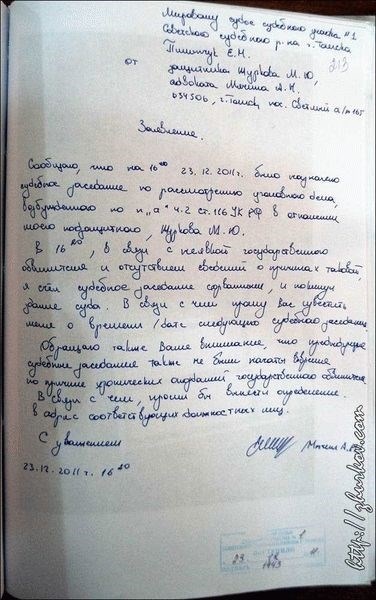 Мировому судье судебного участка №1
Советского судебного р-на г. Томска
Пшеничук Е.М.
213
от
защитника Журкова М.Ю.,
адвоката Мячина А.Н.
634506, г. Томск, пос. Светлый а/я 165
Заявление.
Сообщаю, что на 16⁰⁰ 23.12.2011г. было назначено
судебное заседание по рассмотрению уголовного дела,
возбужденного по п „а" ч.2 ст. 116 УК РФ в отношении
моего подзащитного, Журкова М.Ю.
В 16²⁰, в связи с неявкой государственного
обвинителя и отсутствием сведений о причинах таковой,
я счёл судебное заседание сорванным, и покинул
здание суда. В связи с чем прошу вас известить
меня о времени/дате следующего судебного заседания.
Обращаю также Ваше внимание, что предыдущие
судебные заседания также не были начаты вовремя
по причине хронических опозданий государственного обвинителя.
В связи с чем, просил бы вынести определение
в адрес соответствующих должностных лиц.
С уважением
Мячин А.Н.
23.12.2011 г. 16²⁰
http://zhurkov.com